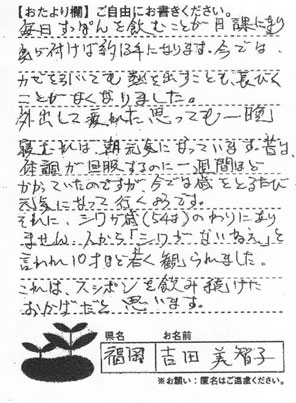 【おたより欄】ご自由にお書きください。
毎日すっぽんを飲むことが日課になり
気が付けば約13年になります。今では、
かぜを引いても熱を出すことも、長びく
ことがなくなりました。
外出して疲れた思っても一晩
寝れば、朝元気になっています。昔は、
体調が回服するのに一週間ほど
かかっていたのですが、今では歳をとるたび
元気になって行くのです。
それに、シワが歳(54才)のわりになり
ません。人から「シワがないねえ」と
言われ10才ほど若く観られました。
これは、スッポンを飲み続けた
おかげだと思います。
県名
お名前
福岡
吉田 美智子
※お願い:匿名はご遠慮ください。